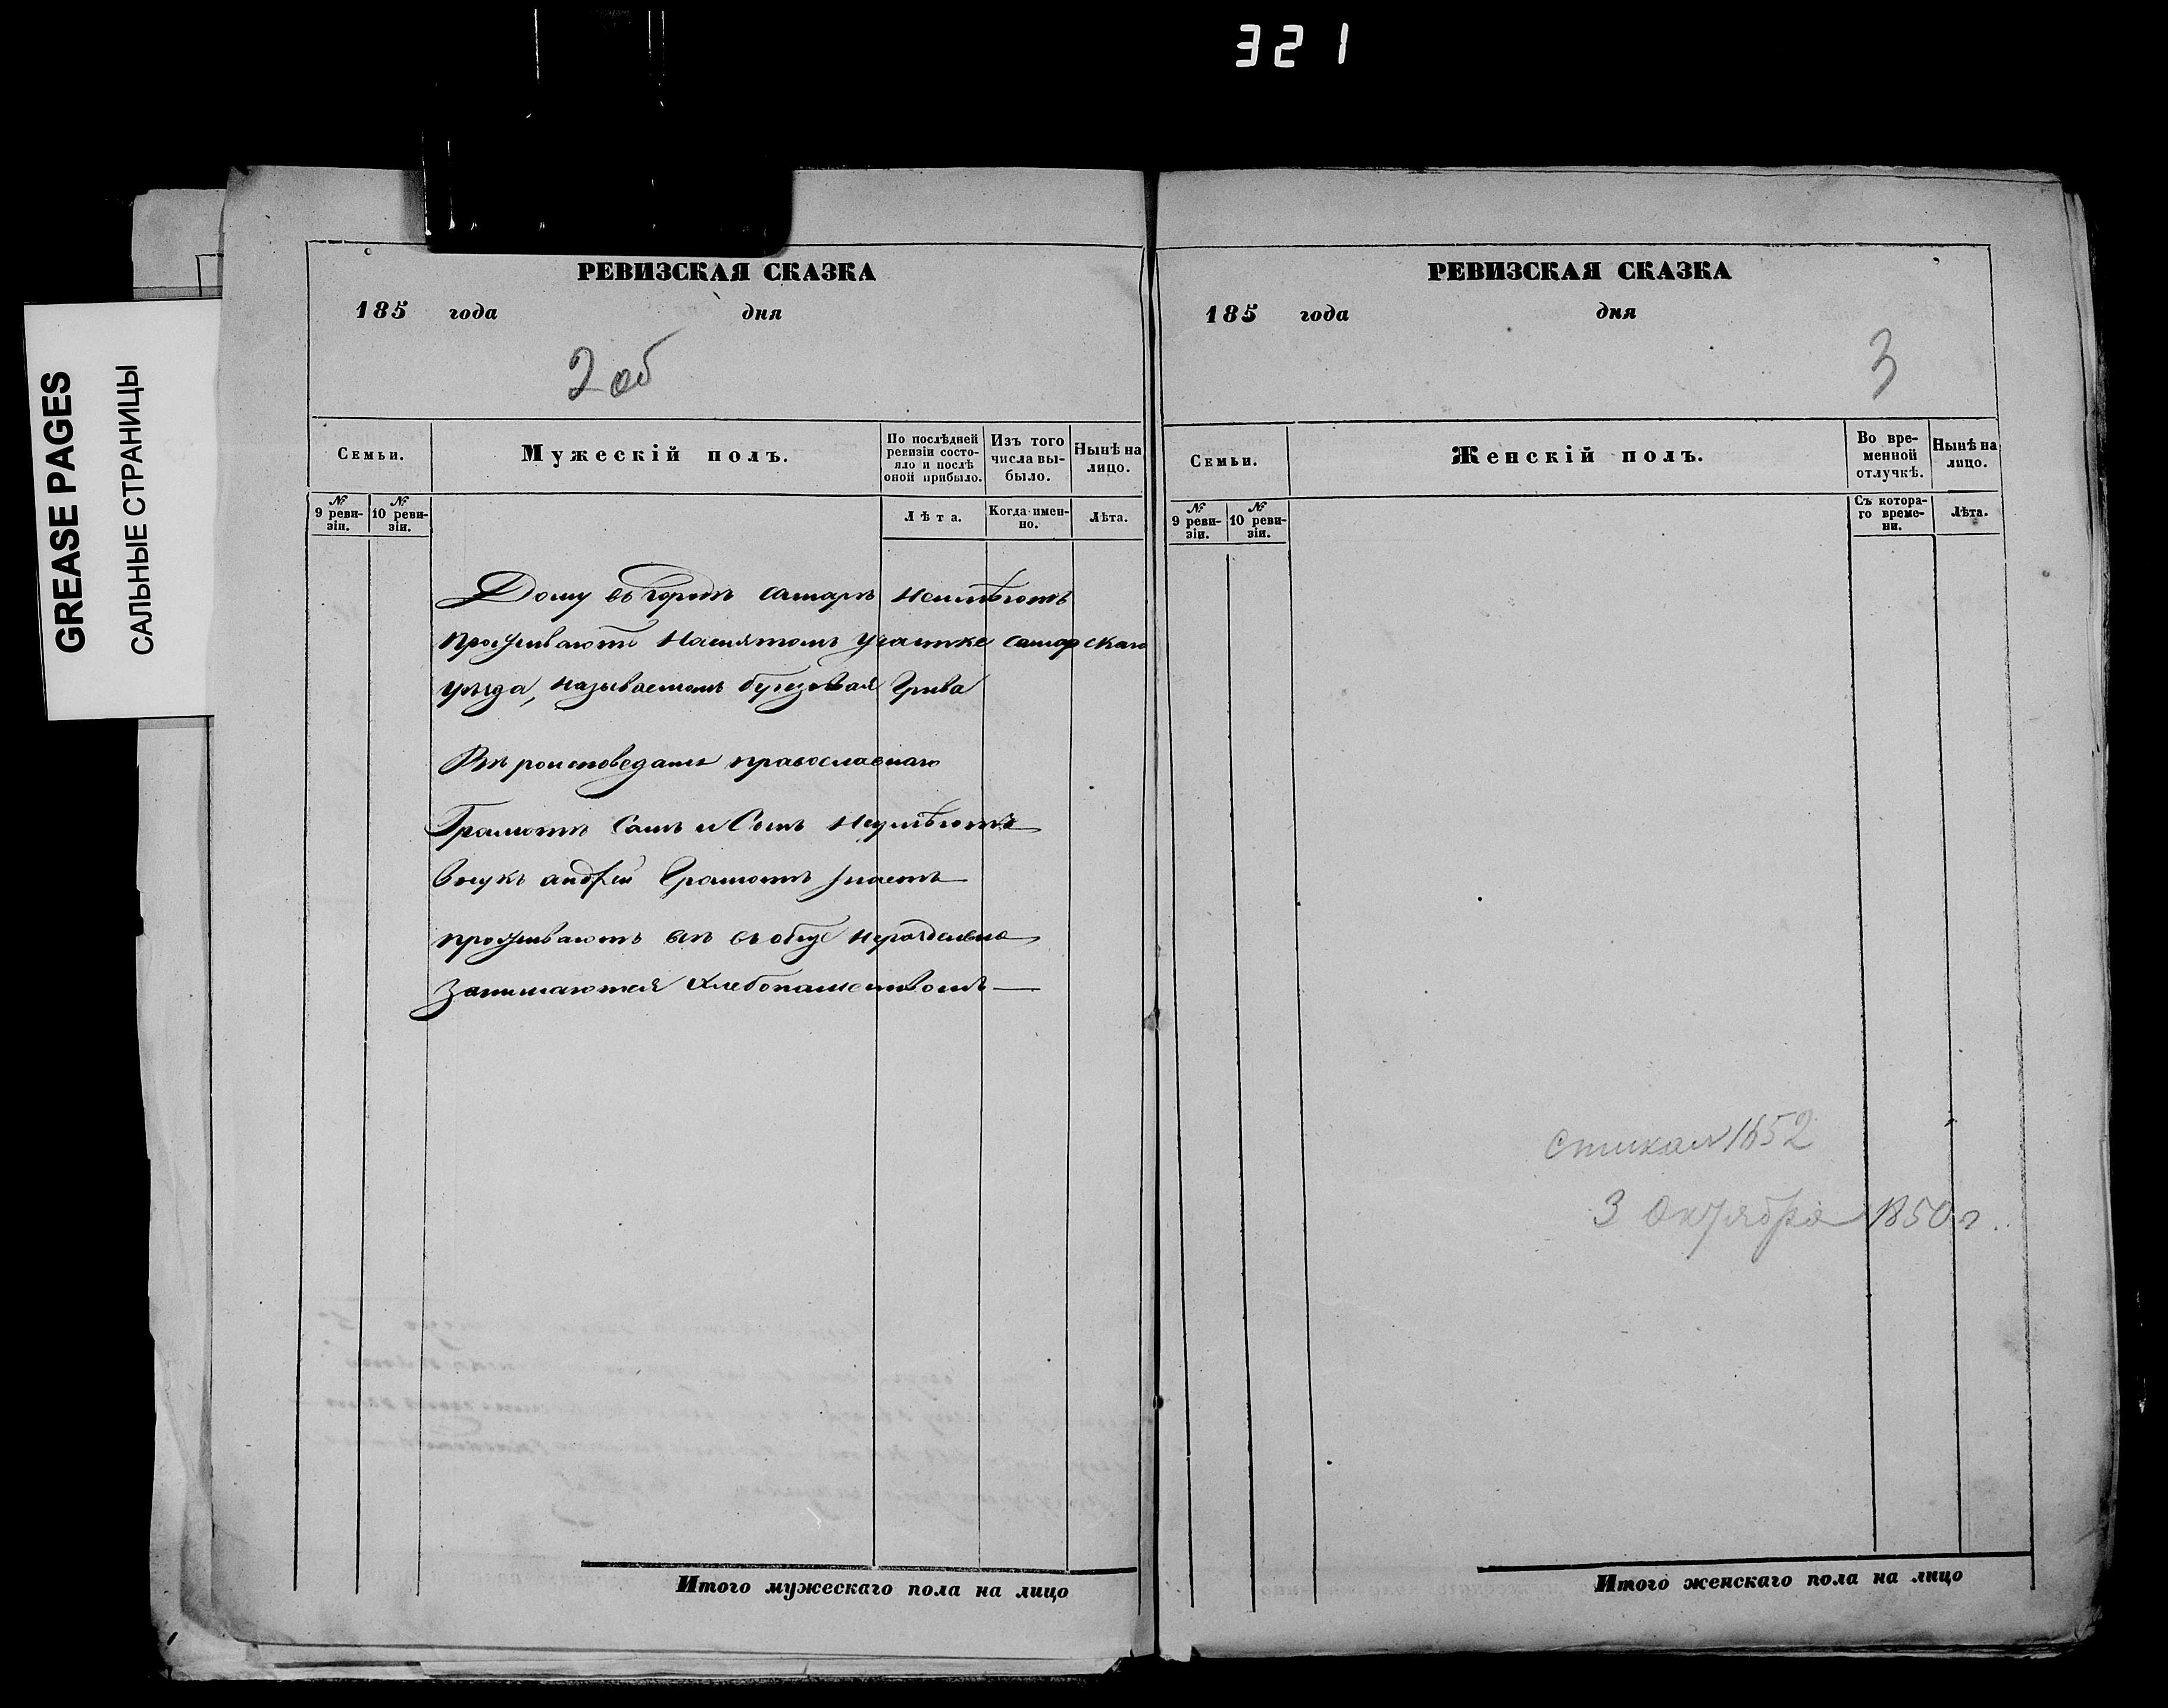 321
GREASE PAGES
САЛЬНЫЕ СТРАНИЦЫ
РЕВИЗСКАЯ СКАЗКА
185 года дня
2 об
Семьи.
Мужескій полъ.
По послѣдней ревизіи состояло и послѣ оной прибыло.
Изъ того числа выбыло.
Нынѣ на лицо.
№ 9 ревизіи.
№ 10 ревизіи.
Лѣта.
Когда именно.
Лѣта.
Дому въ городѣ самарѣ неимѣютъ
проживаютъ Наснятомъ участке самарскаго
уѣзда, называемомъ Грива
Вѣроисповеданія православнаго
Грамотѣ Самъ и Сынъ Неумѣютъ
Внукъ андрей Грамотѣ знаетъ
проживаютъ всѣ въ обще неразделено
Занимаются хлебопашествомъ
Итого мужескаго пола на лицо
РЕВИЗСКАЯ СКАЗКА
185 года дня
3
Семьи.
Женскій полъ.
Во временной отлучкѣ.
Нынѣ на лицо.
№ 9 ревизіи.
№ 10 ревизіи.
Съ котораго времени.
Лѣта.
1852
3 Октября 1850 г.
Итого женскаго пола на лицо